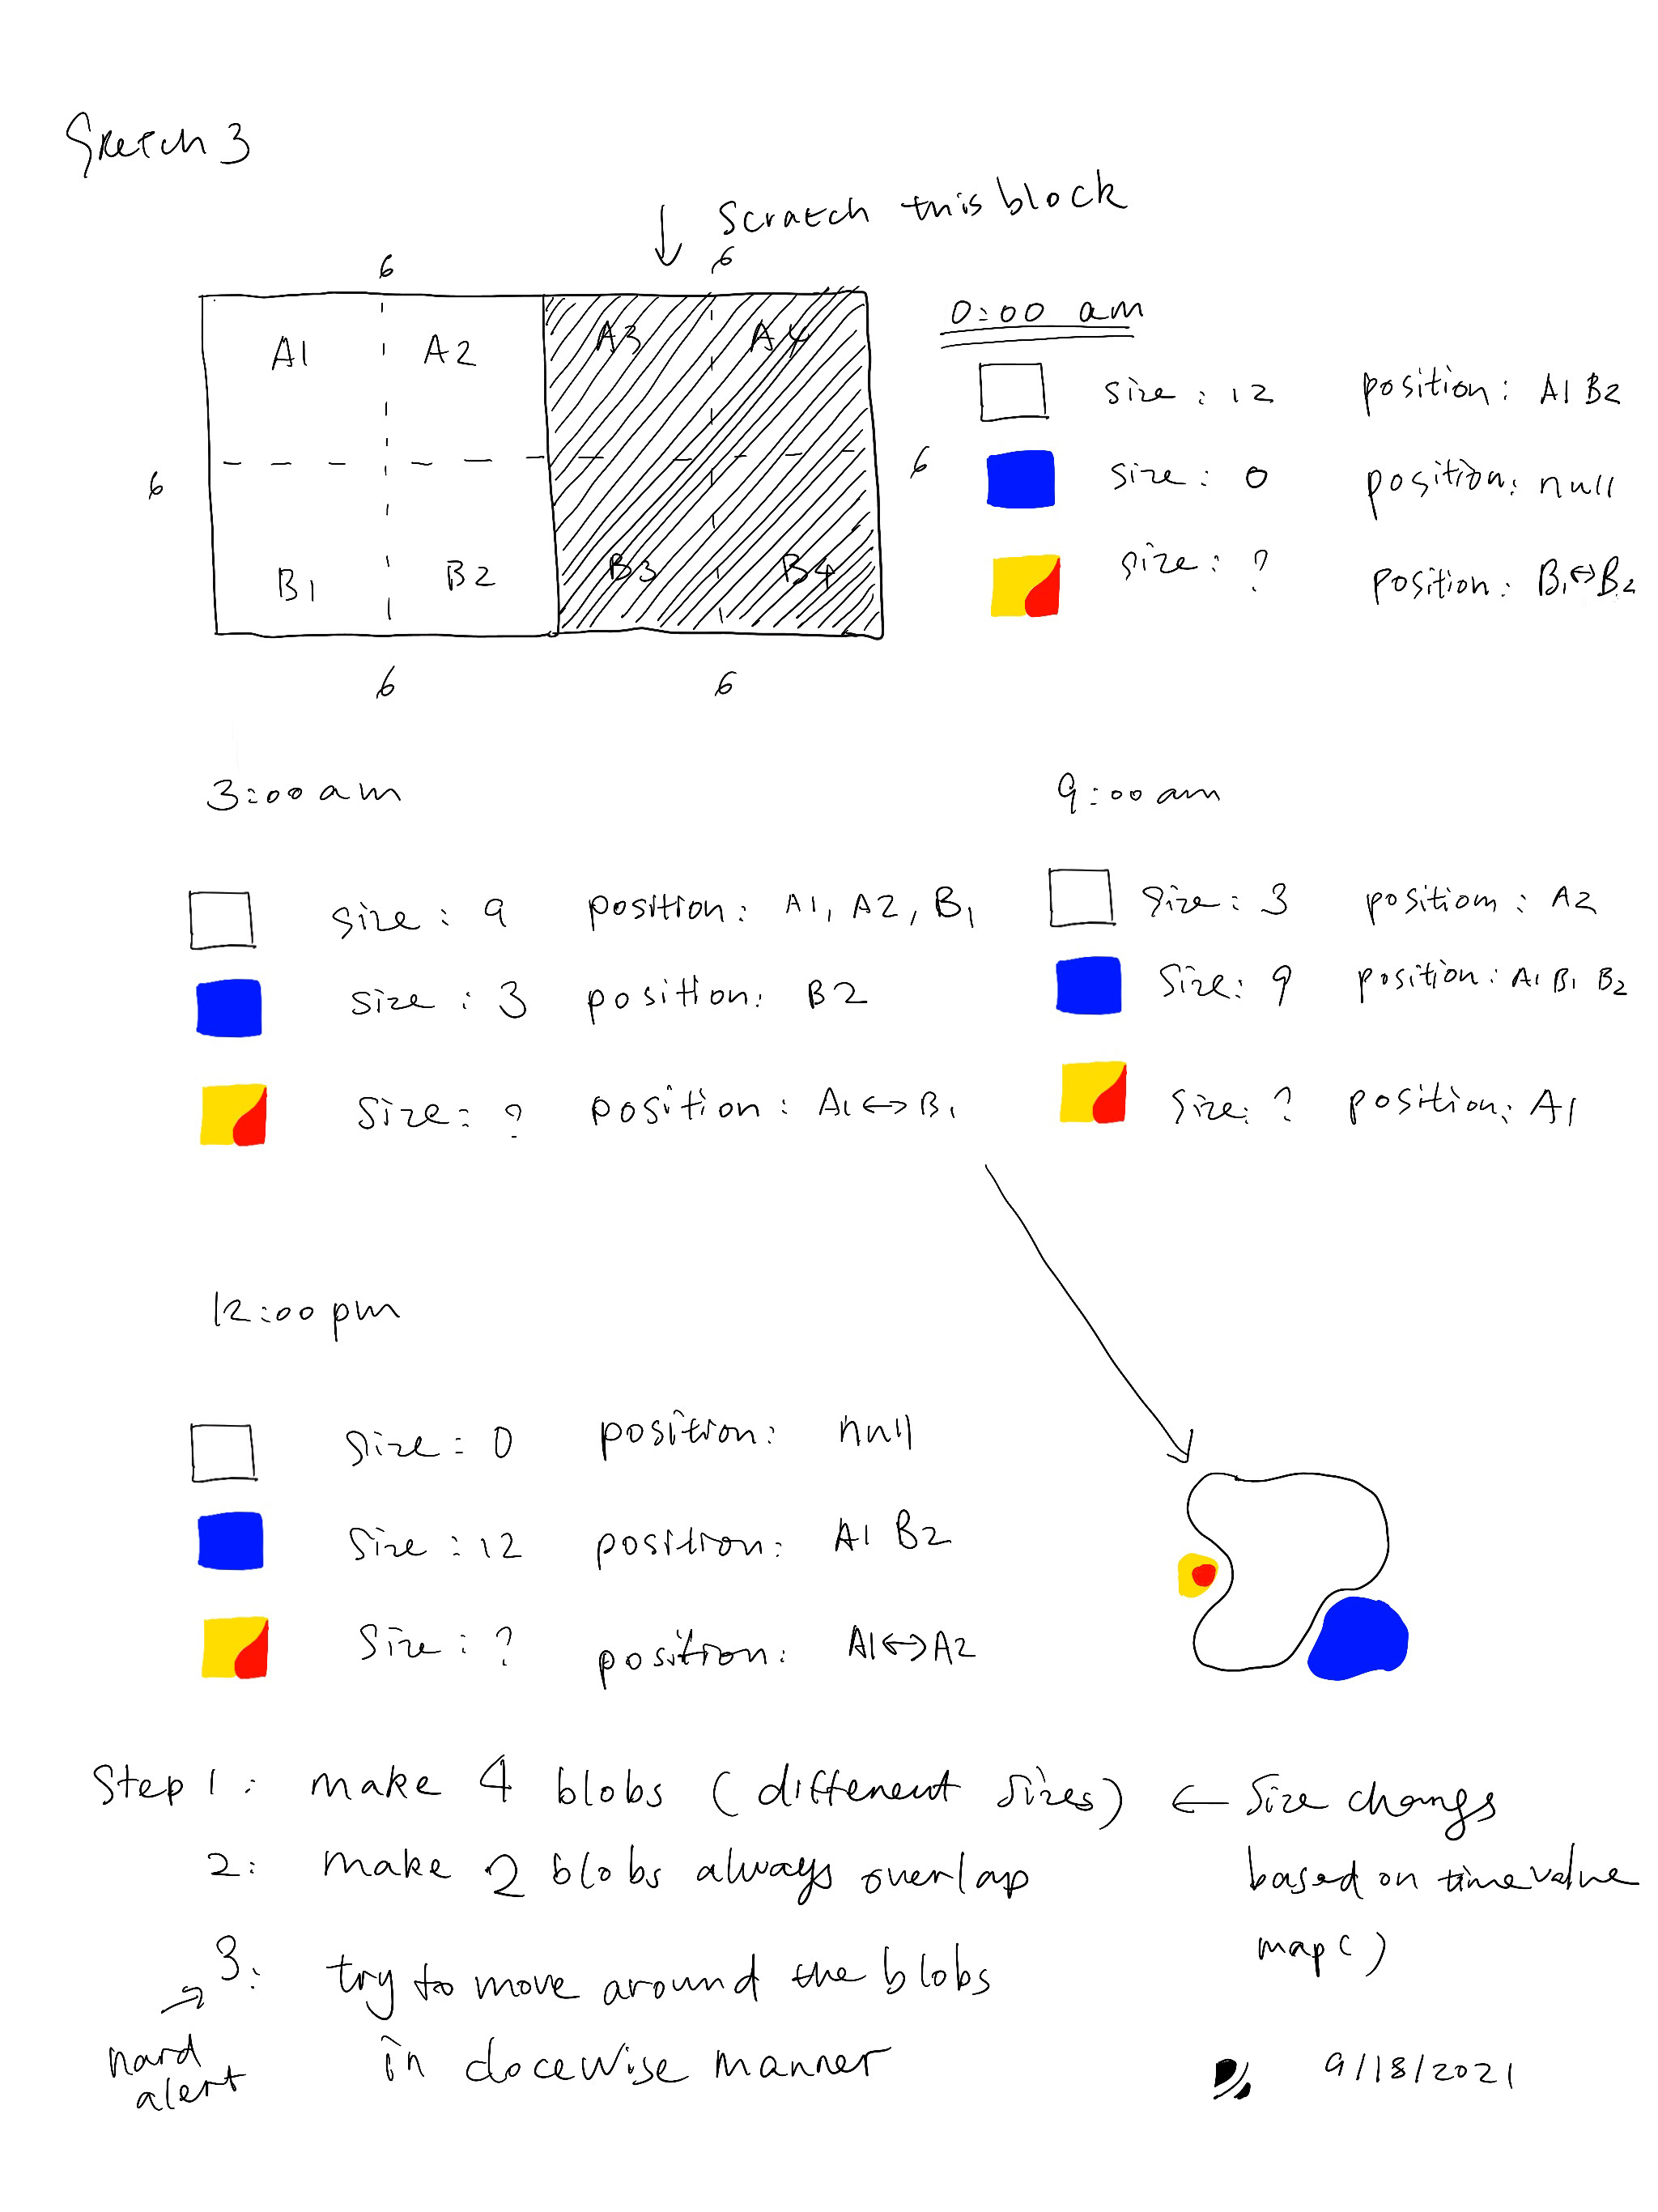 Sketch 3
Scratch this block
6 6
A1 A2 A3 A4
6 6
B1 B2 B3 B4
6 6
0:00 am
size: 12 position: A1 B2
size: 0 position: null
size: ? position: B1↔B2
3:00 am
size: 9 position: A1, A2, B1
size: 3 position: B2
size: ? position: A1↔B1
9:00 am
size: 3 position: A2
size: 9 position: A1 B1 B2
size: ? position: A1
12:00 pm
size: 0 position: null
size: 12 position: A1 B2
size: ? position: A1↔A2
Step 1: make 4 blobs (different sizes) ← size changs
based on time value
map()
2: make 2 blobs always overlap
3: try to move around the blobs
in clocewise manner
→ hard
alert
9/18/2021